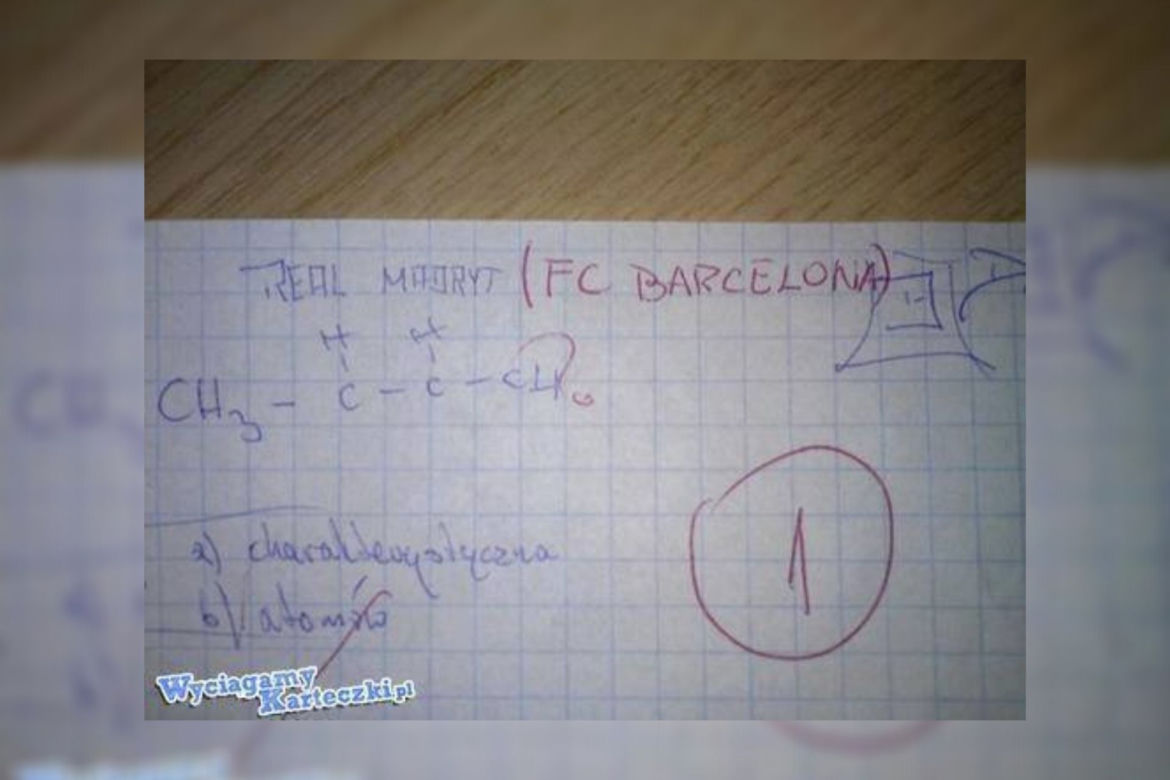 REAL MADRYT (FC BARCELONA)
H H
CH3 - C - C - CH
a) charakterystyczna
b) atomów
1
Wyciągamy
Karteczki.pl